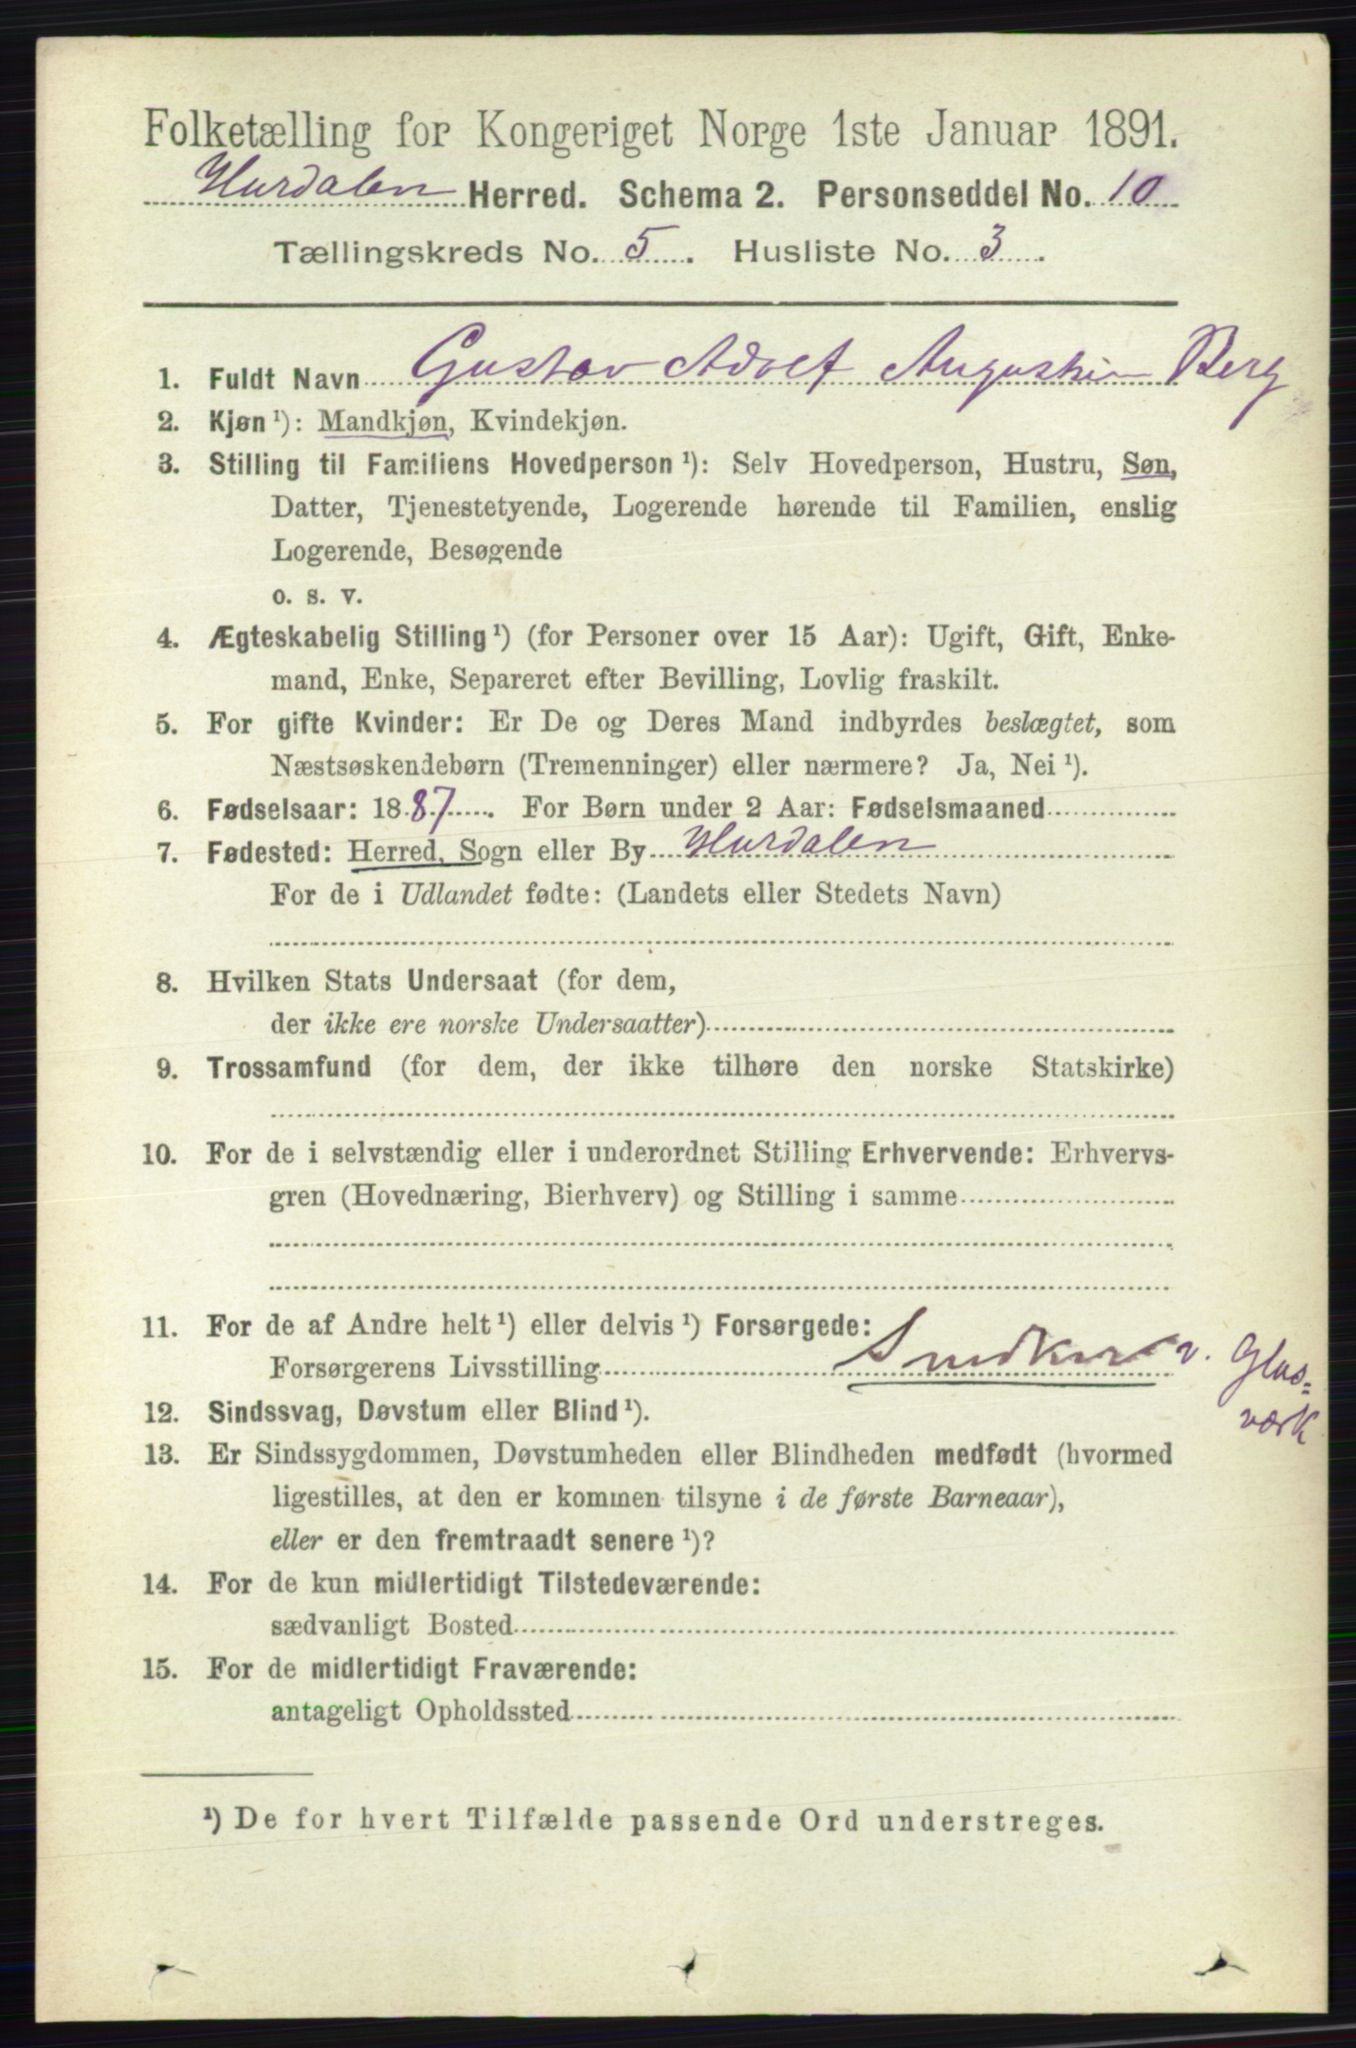 Folketælling for Kongeriget Norge 1ste Januar 1891.
Hurdalen Herred. Schema 2. Personseddel No. 10
Tællingskreds No. 5. Husliste No. 3.
1. Fuldt Navn Gustav Adolf Augustin Berg
2. Kjøn ¹): Mandkjøn, Kvindekjøn.
3. Stilling til Familiens Hovedperson ¹): Selv Hovedperson, Hustru, Søn,
Datter, Tjenestetyende, Logerende hørende til Familien, enslig
Logerende, Besøgende
o. s. v.
4. Ægteskabelig Stilling ¹) (for Personer over 15 Aar): Ugift, Gift, Enke-
mand, Enke, Separeret efter Bevilling, Lovlig fraskilt.
5. For gifte Kvinder: Er De og Deres Mand indbyrdes beslægtet, som
Næstsøskendebørn (Tremenninger) eller nærmere? Ja, Nei ¹).
6. Fødselsaar: 1887. For Børn under 2 Aar: Fødselsmaaned
7. Fødested: Herred, Sogn eller By Hurdalen
For de i Udlandet fødte: (Landets eller Stedets Navn)
8. Hvilken Stats Undersaat (for dem,
der ikke ere norske Undersaatter)
9. Trossamfund (for dem, der ikke tilhøre den norske Statskirke)
10. For de i selvstændig eller i underordnet Stilling Erhvervende: Erhvervs-
gren (Hovednæring, Bierhverv) og Stilling i samme
11. For de af Andre helt ¹) eller delvis ¹) Forsørgede:
Forsørgerens Livsstilling Snedker v. Glas=
værk
12. Sindssvag, Døvstum eller Blind ¹).
13. Er Sindssygdommen, Døvstumheden eller Blindheden medfødt (hvormed
ligestilles, at den er kommen tilsyne i de første Barneaar),
eller er den fremtraadt senere ¹)?
14. For de kun midlertidigt Tilstedeværende:
sædvanligt Bosted
15. For de midlertidigt Fraværende:
antageligt Opholdssted
¹) De for hvert Tilfælde passende Ord understreges.